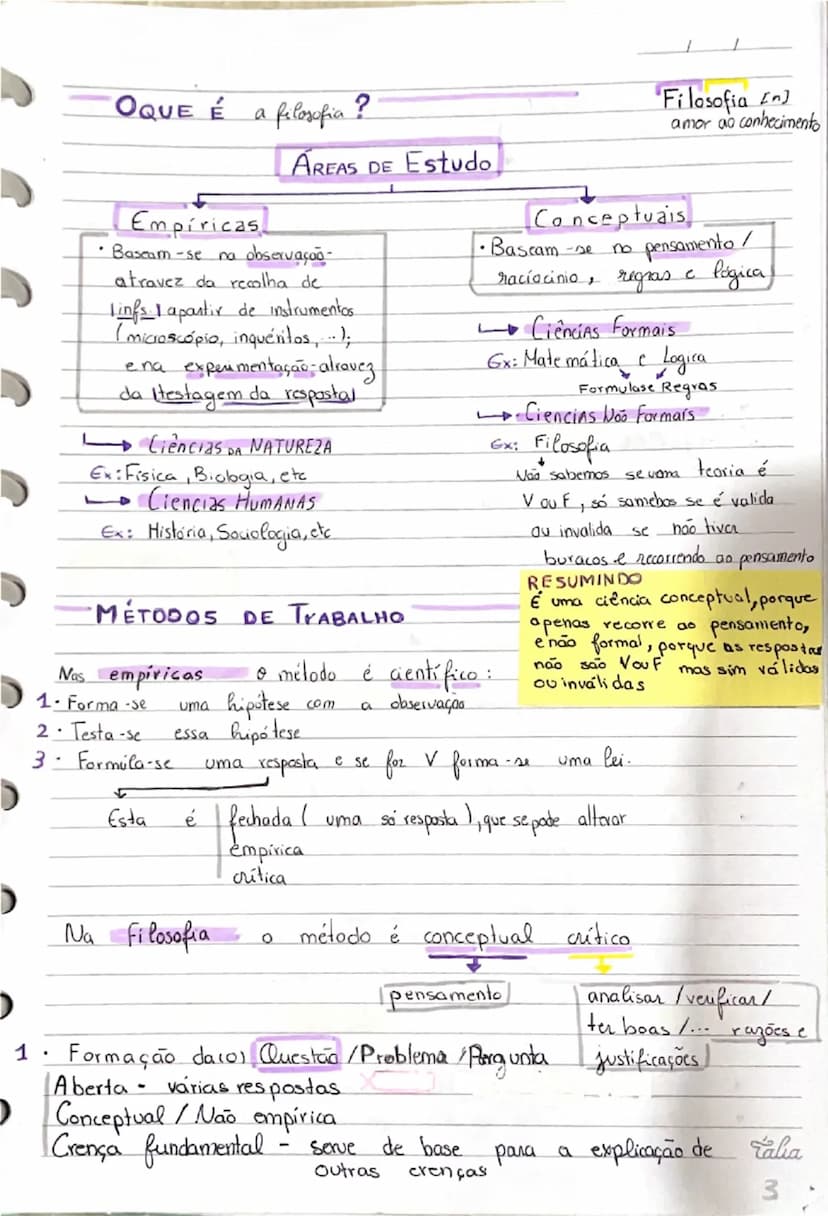 / /
OQUE É a filosofia?
Filosofia [n]
amor ao conhecimento
ÁREAS DE ESTUDO
Empíricas
• Baseam-se na observação-
atravez da recolha de
|infs.| apartir de instrumentos
(microscópio, inquéritos, ...);
e na experimentação-atravez
da |testagem da resposta|
Ciências DA NATUREZA
Ex: Física, Biologia, etc
Ciencias HUMANAS
Ex: História, Sociologia, etc
Conceptuais
• Baseam-se no pensamento /
raciocinio, regras e lógica
Ciências Formais
Ex: Matemática e Logica
Formulase Regras
Ciencias Não Formais
Ex: Filosofia
Não sabemos se uma teoria é
V ou F, só samebos se é valida
ou invalida se não tiver
buracos e recorrendo ao pensamento
RESUMINDO
É uma ciência conceptual, porque
apenas recorre ao pensamento,
e não formal, porque as respostas
não são V ou F mas sim válidas
ou inválidas
MÉTODOS DE TRABALHO
Nas empíricas o método é científico:
1• Forma-se uma hipótese com a observação
2• Testa-se essa hipótese
3• Formúla-se uma resposta e se for V forma-se uma lei.
Esta é fechada ( uma só resposta ), que se pode alterar
empírica
crítica
Na Filosofia o método é conceptual crítico
pensamento
analisar / verificar /
ter boas /... razões e
justificações
1• Formação da(o) Questão / Problema / Pergunta
Aberta - várias respostas
Conceptual / Não empírica
Crença fundamental - serve de base para a explicação de
outras crenças
Tália
3